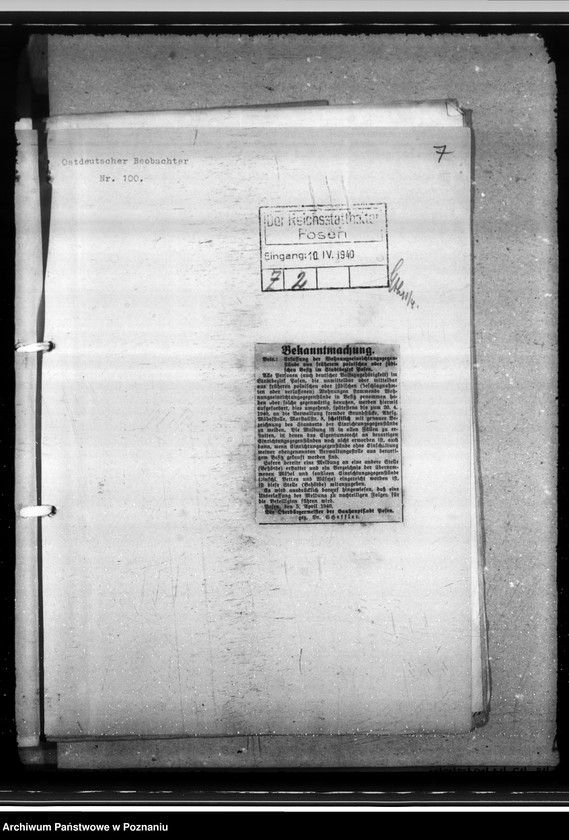 7
Ostdeutscher Beobachter
Nr. 100.
Der Reichsstatthalter
Posen
Eingang: 10. IV. 1940
7 2
Bekanntmachung.
Betr.: Erfassung der Wohnungseinrichtungsgegen-
stände aus früherem polnischen oder jüdi-
schen Besitz im Stadtbezirk Posen.
Alle Personen (auch deutscher Volkszugehörigkeit) im
Stadtbezirk Posen, die unmittelbar oder mittelbar
aus früheren polnischen oder jüdischen (beschlagnahm-
ten oder verlassenen) Wohnungen stammende Woh-
nungseinrichtungsgegenstände in Besitz genommen ha-
ben oder solche gegenwärtig benutzen, werden hiermit
aufgefordert, dies umgehend, spätestens bis zum 20. 4.
1940, an die Verwaltung fremder Grundstücke, Abtlg.
Möbelstelle, schriftlich mit genauer Be-
zeichnung des Standorts der Einrichtungsgegenstände
zu melden. Die Meldung ist in allen Fällen zu er-
statten, in denen das Eigentumsrecht an derartigen
Einrichtungsgegenständen noch nicht erworben ist, auch
dann, wenn Einrichtungsgegenstände ohne Einschaltung
meiner obengenannten Verwaltungsstelle aus derarti-
gem Besitz gekauft worden sind.
Sofern bereits eine Meldung an eine andere Stelle
(Behörde) erstattet und ein Verzeichnis der übernom-
menen Möbel und sonstigen Einrichtungsgegenstände
(einschl. Betten und Wäsche) eingereicht worden ist,
ist diese Stelle (Behörde) mitzuteilen.
Es wird ausdrücklich darauf hingewiesen, daß eine
Unterlassung der Meldung zu nachteiligen Folgen für
die Beteiligten führen wird.
Posen, den 5. April 1940.
Der Oberbürgermeister der Gauhauptstadt Posen.
gez. Dr. Scheffler.
Archiwum Państwowe w Poznaniu